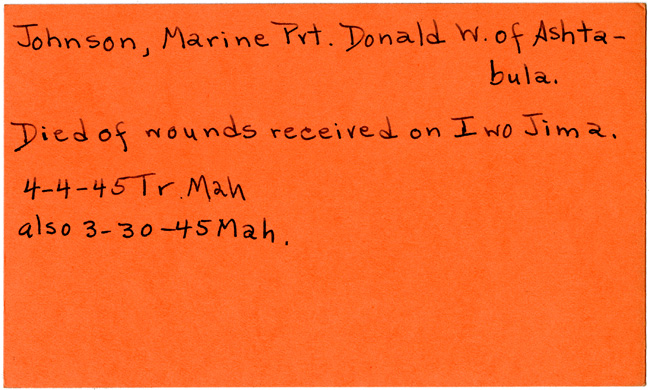 Johnson, Marine Pvt. Donald W. of Ashta-
bula.
Died of wounds received on Iwo Jima.
4-4-45 Tr. Mah
also 3-30-45 Mah.